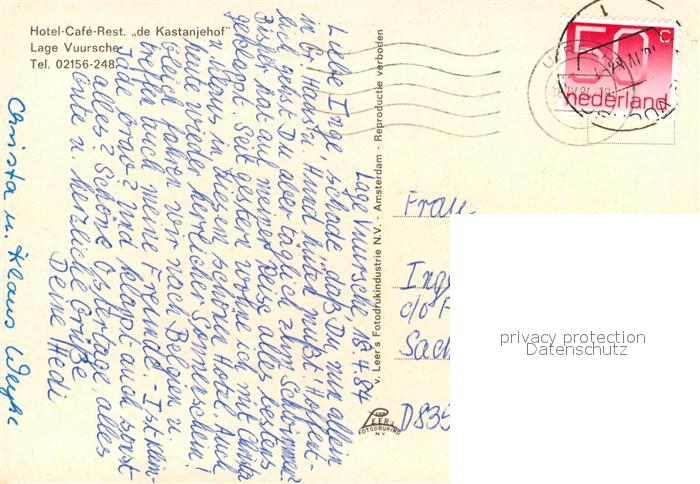 Hotel-Café-Rest. „de Kastanjehof"
Lage Vuursche
Tel. 02156-248
Lage Vuursche 18.4.84
Liebe Inge, schade, daß Du nun allein
in Grünstr. Hund hüten mußt! Hoffent-
lich gehst Du aber täglich zum Schwimmen.
Bisher hat auf meiner Reise alles bestens
geklappt. Seit gestern wohne ich mit Christa
u. Klaus in diesem schönen Hotel. Auch
heute wieder herrlicher Sonnenschein!
Gleich fahren wir nach Belgien u.
treffen auch meine Freunde. - Ist
brav? und klappt auch sonst
alles? Schöne Ostertage alles
Gute u. herzliche Grüße
Deine Hedi
Christa u. Klaus
v. Leer's Fotodrukindustrie N.V. - Amsterdam - Reproductie verboden
VAN
LEER'S
FOTODRUKIND
N.V.
50 c
nederland
Frau
Inge
c/o F
Sach
D835
privacy protection
Datenschutz